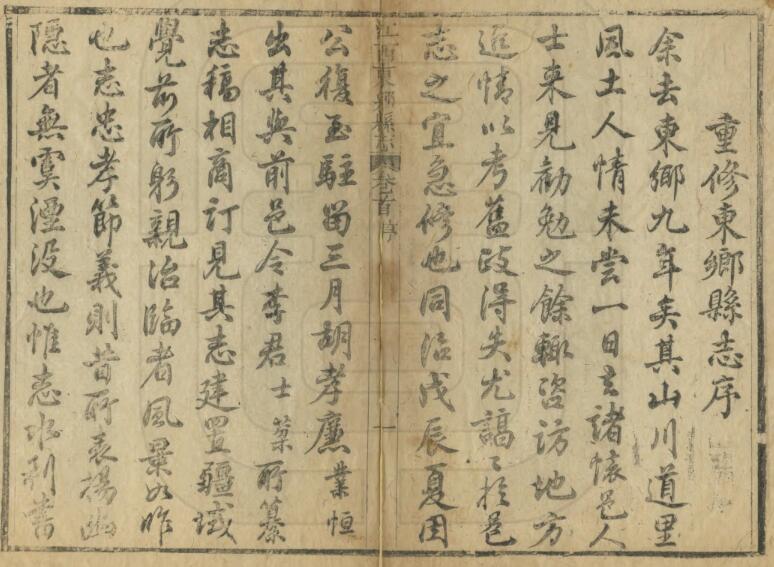 重修東鄉縣志序
余去東鄉九年矣其山川道里
風土人情未嘗一日去諸懷邑人
士來見勸勉之餘輙咨訪地方
近情以考舊政得失尤諄諄於邑
志之宜急修也同治戊辰夏因
江西東鄉縣志 卷首 序 一
公復至駐留三月胡孝廉業恒
出其與前邑令李君士棻所纂
志稿相商訂見其志建置疆域
覺前所躬親治臨者風景如昨
也志忠孝節義則昔所表揚幽
隱者無虞湮没也惟志水利書